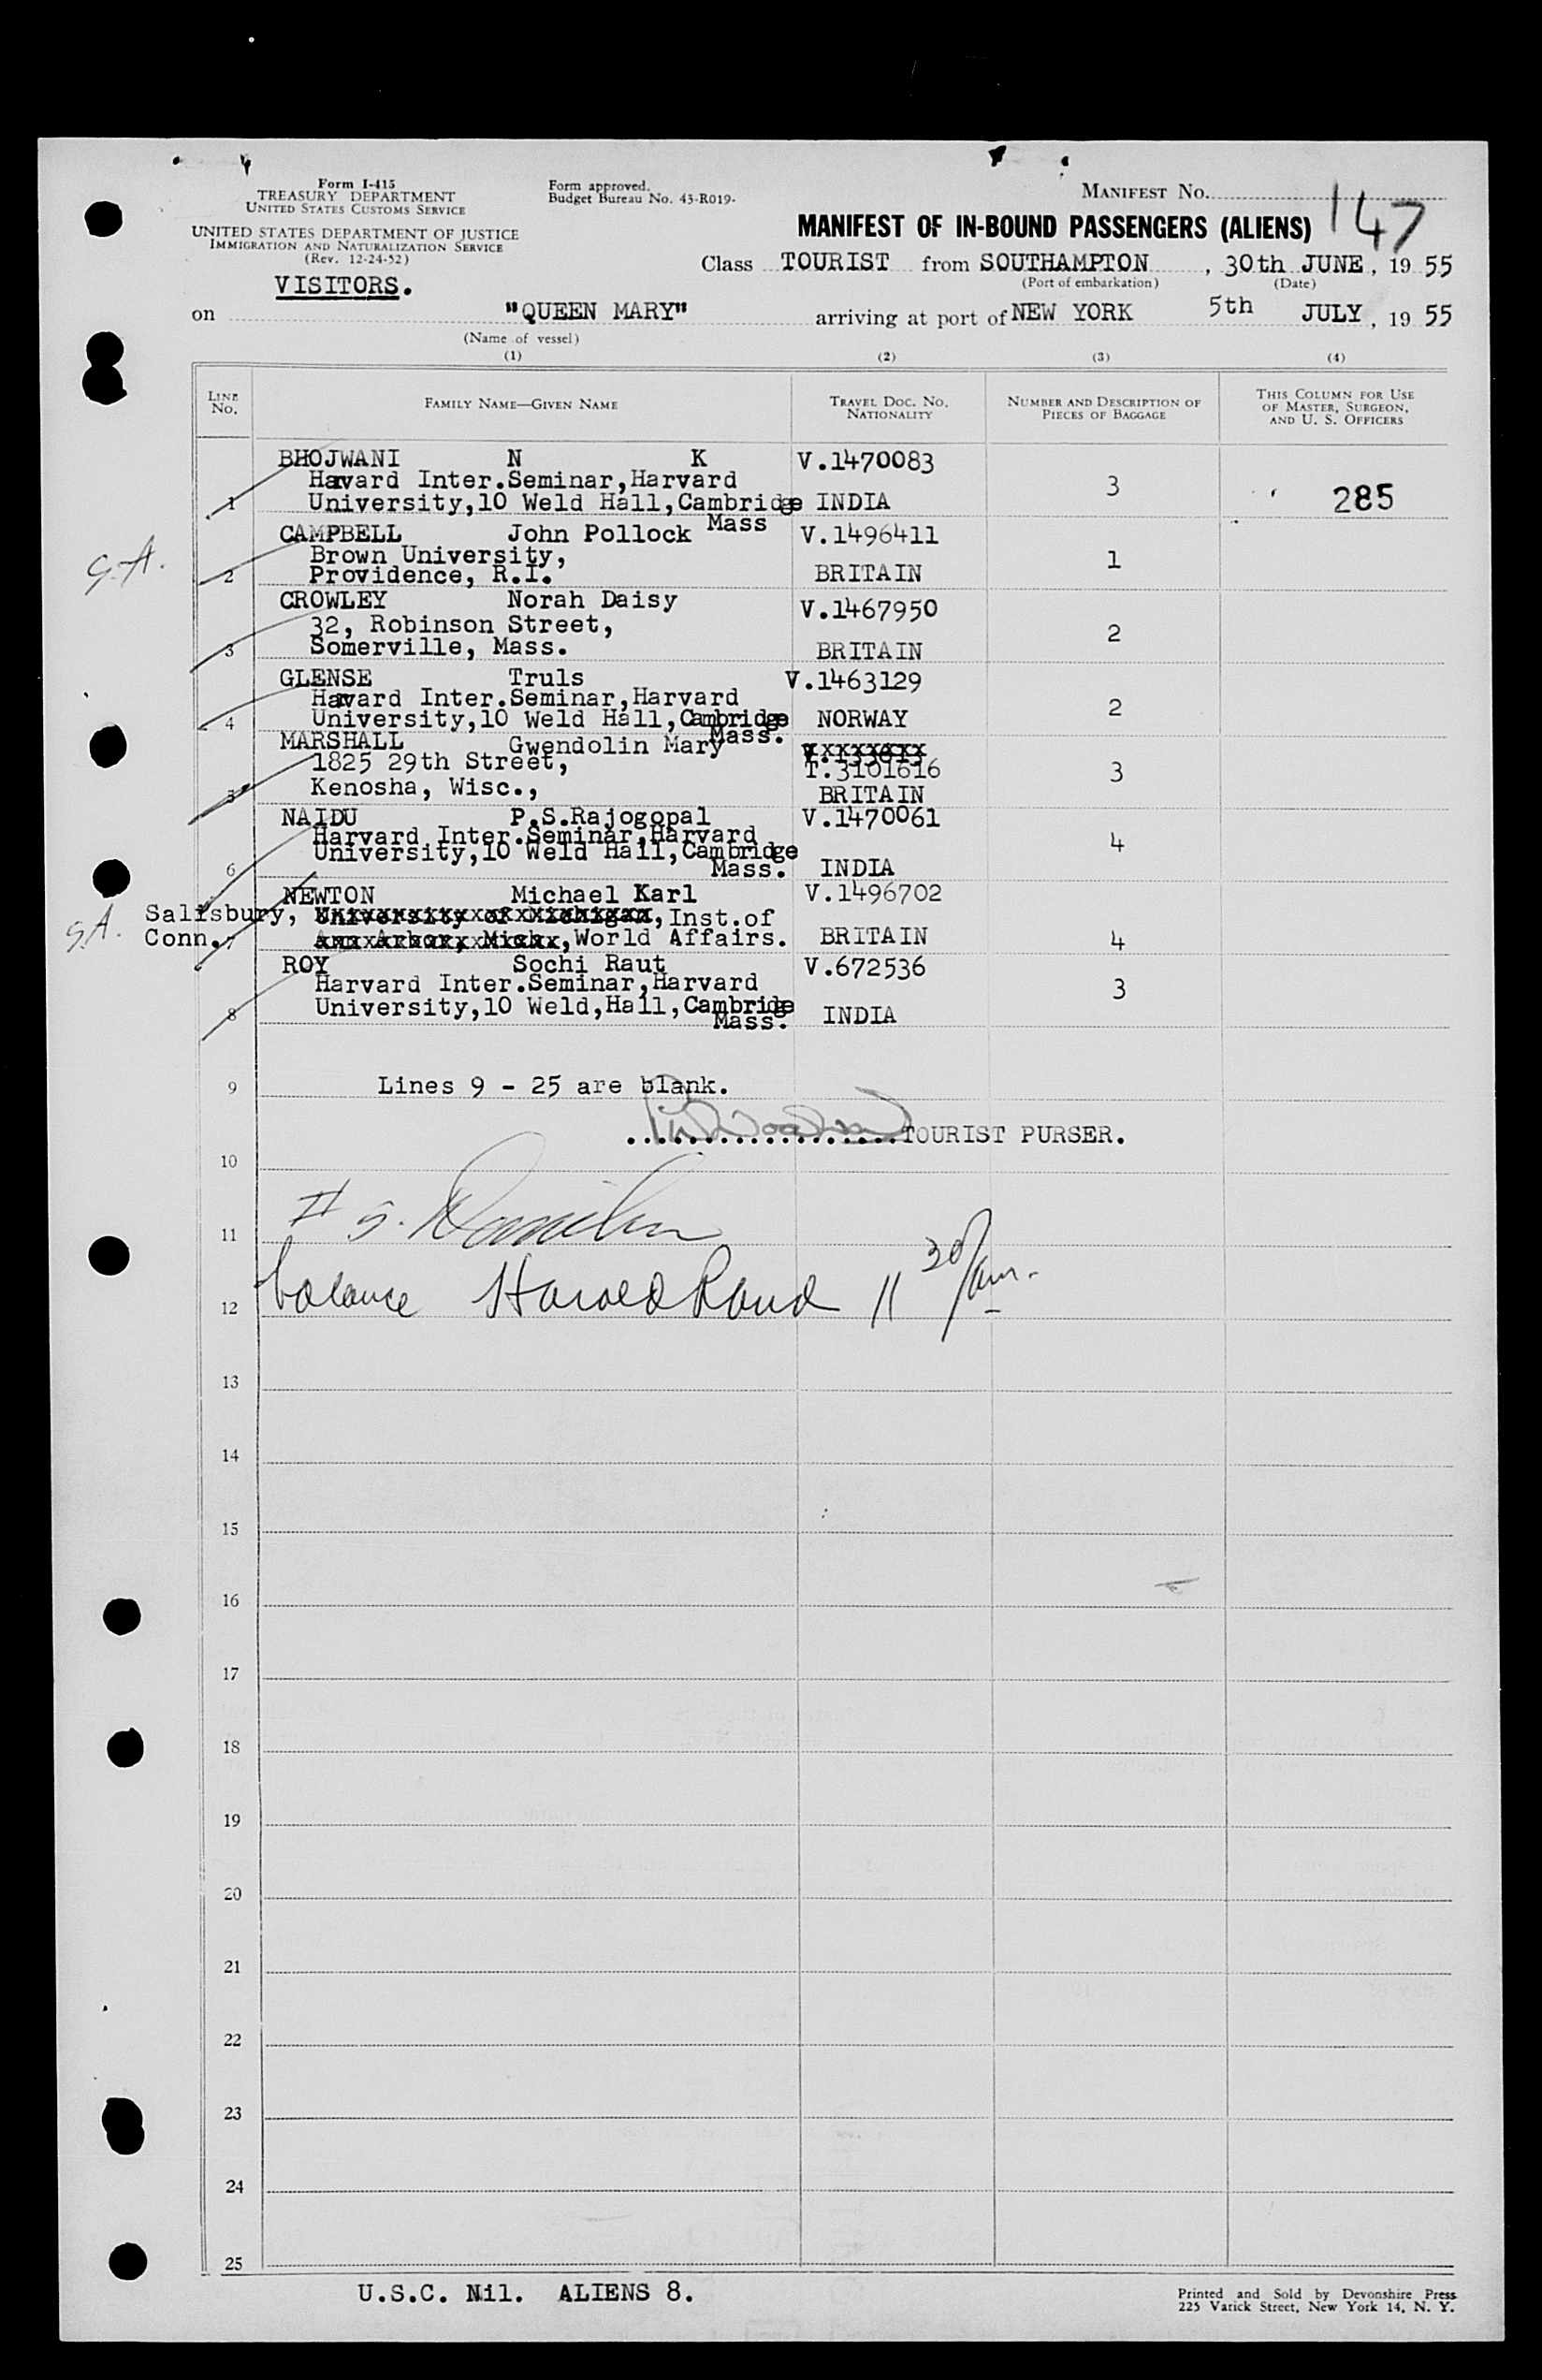 Form I-415
TREASURY DEPARTMENT
UNITED STATES CUSTOMS SERVICE
UNITED STATES DEPARTMENT OF JUSTICE
IMMIGRATION AND NATURALIZATION SERVICE
(Rev. 12-24-52)
VISITORS.
Form approved.
Budget Bureau No. 43-R019.
MANIFEST NO. 147
MANIFEST OF IN-BOUND PASSENGERS (ALIENS)
Class TOURIST from SOUTHAMPTON, 30th JUNE, 19 55
(Port of embarkation) (Date)
on "QUEEN MARY" arriving at port of NEW YORK 5th JULY, 19 55
(Name of vessel)
(1) (2) (3) (4)
LINE NO. FAMILY NAME—GIVEN NAME TRAVEL DOC. NO. NATIONALITY NUMBER AND DESCRIPTION OF PIECES OF BAGGAGE THIS COLUMN FOR USE OF MASTER, SURGEON, AND U. S. OFFICERS
BHOJWANI N K V.1470083
Havard Inter.Seminar,Harvard 3
1 University,10 Weld Hall,Cambridge INDIA 285
Mass
CAMPBELL John Pollock V.1496411
G.A. Brown University, 1
2 Providence, R.I. BRITAIN
CROWLEY Norah Daisy V.1467950
32, Robinson Street, 2
3 Somerville, Mass. BRITAIN
GLENSE Truls V.1463129
Havard Inter.Seminar,Harvard 2
4 University,10 Weld Hall,Cambridge NORWAY
Mass.
MARSHALL Gwendolin Mary
1825 29th Street, T.3101616 3
5 Kenosha, Wisc., BRITAIN
NAIDU P.S.Rajogopal V.1470061
Harvard Inter.Seminar,Harvard 4
University,10 Weld Hall,Cambridge
6 Mass. INDIA
NEWTON Michael Karl V.1496702
G.A. Salisbury, University of Michigan, Inst.of
Conn. 7 Ann Arbor, Mich., World Affairs. BRITAIN 4
ROY Sochi Raut V.672536
Harvard Inter.Seminar,Harvard 3
8 University,10 Weld,Hall,Cambridge INDIA
Mass.
9 Lines 9 - 25 are blank.
TOURIST PURSER.
10
11
12 balance Harold Rand 11 30/am.
13
14
15
16
17
18
19
20
21
22
23
24
25
U.S.C. Nil. ALIENS 8.
Printed and Sold by Devonshire Press
225 Varick Street, New York 14, N. Y.